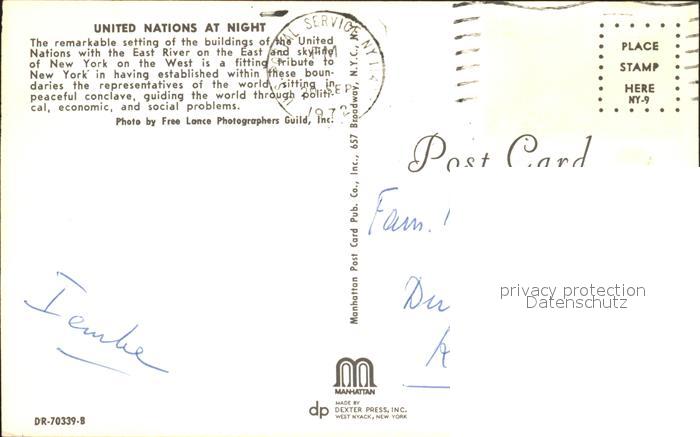 UNITED NATIONS AT NIGHT
The remarkable setting of the buildings of the United
Nations with the East River on the East and skyline
of New York on the West is a fitting tribute to
New York in having established within these boun-
daries the representatives of the world sitting in
peaceful conclave, guiding the world through politi-
cal, economic, and social problems.
Photo by Free Lance Photographers Guild, Inc.
SERVICE NY
PM
SEP
1972
PLACE
STAMP
HERE
NY-9
Post Card
Manhattan Post Card Pub. Co., Inc., 657 Broadway, N.Y.C., N.
Fam.
privacy protection
Datenschutz
MANHATTAN
dp
MADE BY
DEXTER PRESS, INC.
WEST NYACK, NEW YORK
DR-70339-B